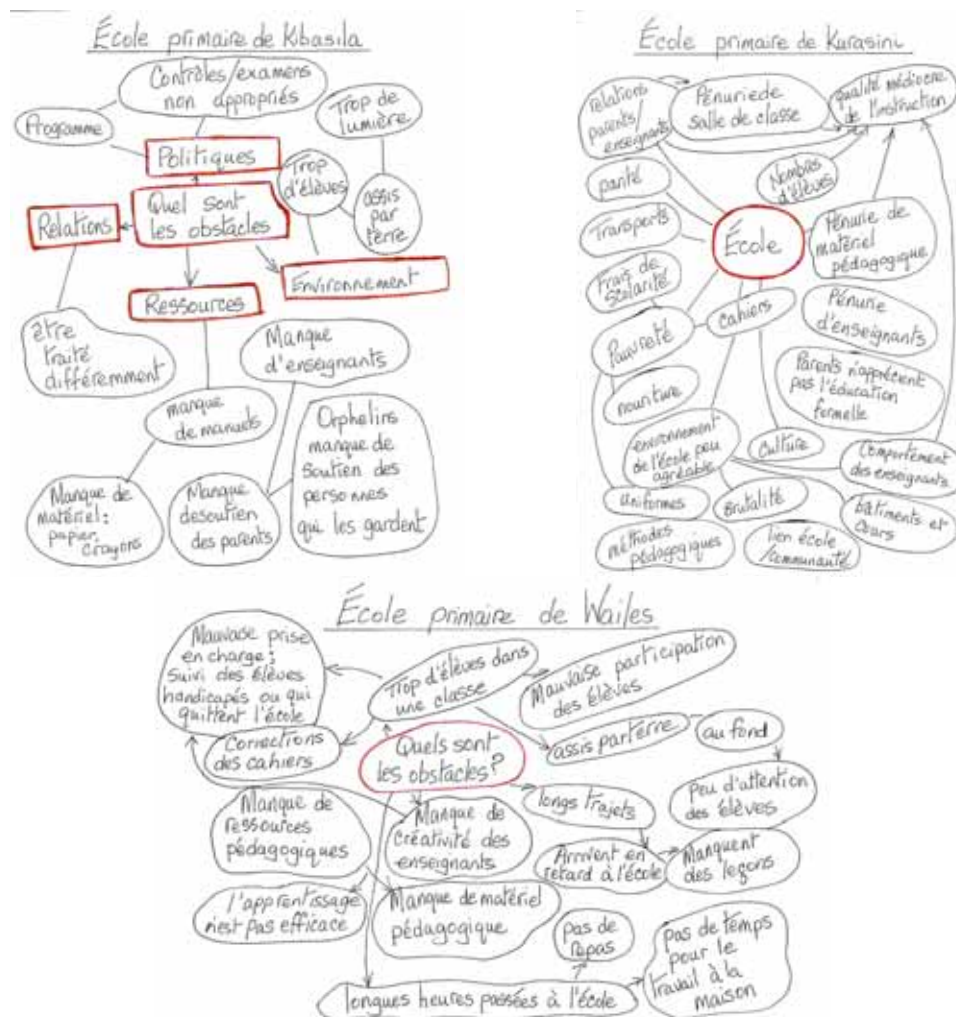 École primaire de Kibasila
Contrôles/examens
non appropriés
Trop de
lumière
Programme
Politiques
Trop
d'élèves
assis
par
terre
Relations
Quel sont
les obstacles
Environnement
Ressources
être
traité
différemment
Manque
d'enseignants
manque
de manuels
Orphelins
manque de
soutien des
personnes
qui les gardent
Manque de
matériel:
papier,
crayons
Manque
desoutien
des parents
École primaire de Kurasini
relations
parents/
enseignants
Pénurie de
salle de classe
qualité médiocre
de l'instruction
Nombres
d'élèves
École
Transports
Pénurie de
matériel
pédagogique
Frais de
scolarité
cahiers
Pauvreté
Pénurie
d'enseignants
Parents n'apprécient
pas l'éducation
formelle
nouriture
environnement
de l'école peu
agréable
culture
Comportement
des enseignants
uniformes
Brutalité
bâtiments et
cours
méthodes
pédagogiques
lien école
/communauté
École primaire de Wailes
Mauvaise prise
en charge;
suivi des élèves
handicapés ou qui
quittent l'école
Trop d'élèves dans
une classe
Mauvaise participation
des élèves
assis parterre
au fond
Corrections
des cahiers
Quels sont
les obstacles?
peu d'attention
des élèves
longs trajets
Manque de
ressources
pédagogiques
Manque de
créativité des
enseignants
Arrivent en
retard à l'école
Manquent
des leçons
l'apprentissage
n'est pas efficace
Manque de matériel
pédagogique
pas de
repas
pas de temps
pour le
travail à la
maison
longues heures passées à l'école